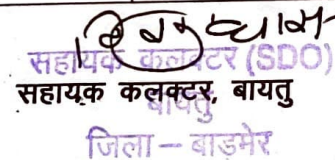 सहायक कलक्टर (SDO)
सहायक कलक्टर, बायतु
बायतु
जिला – बाडमेर